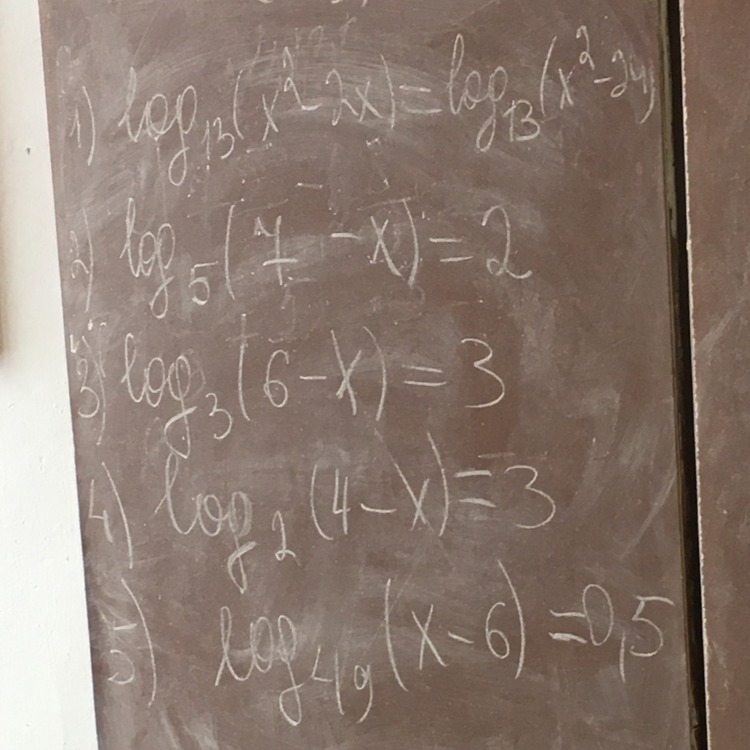 1) log₁₃(x²-2x)=log₁₃(x²-24)
2) log₅(7-x)=2
3) log₃(6-x)=3
4) log₂(4-x)=3
5) log₄₉(x-6)=0,5